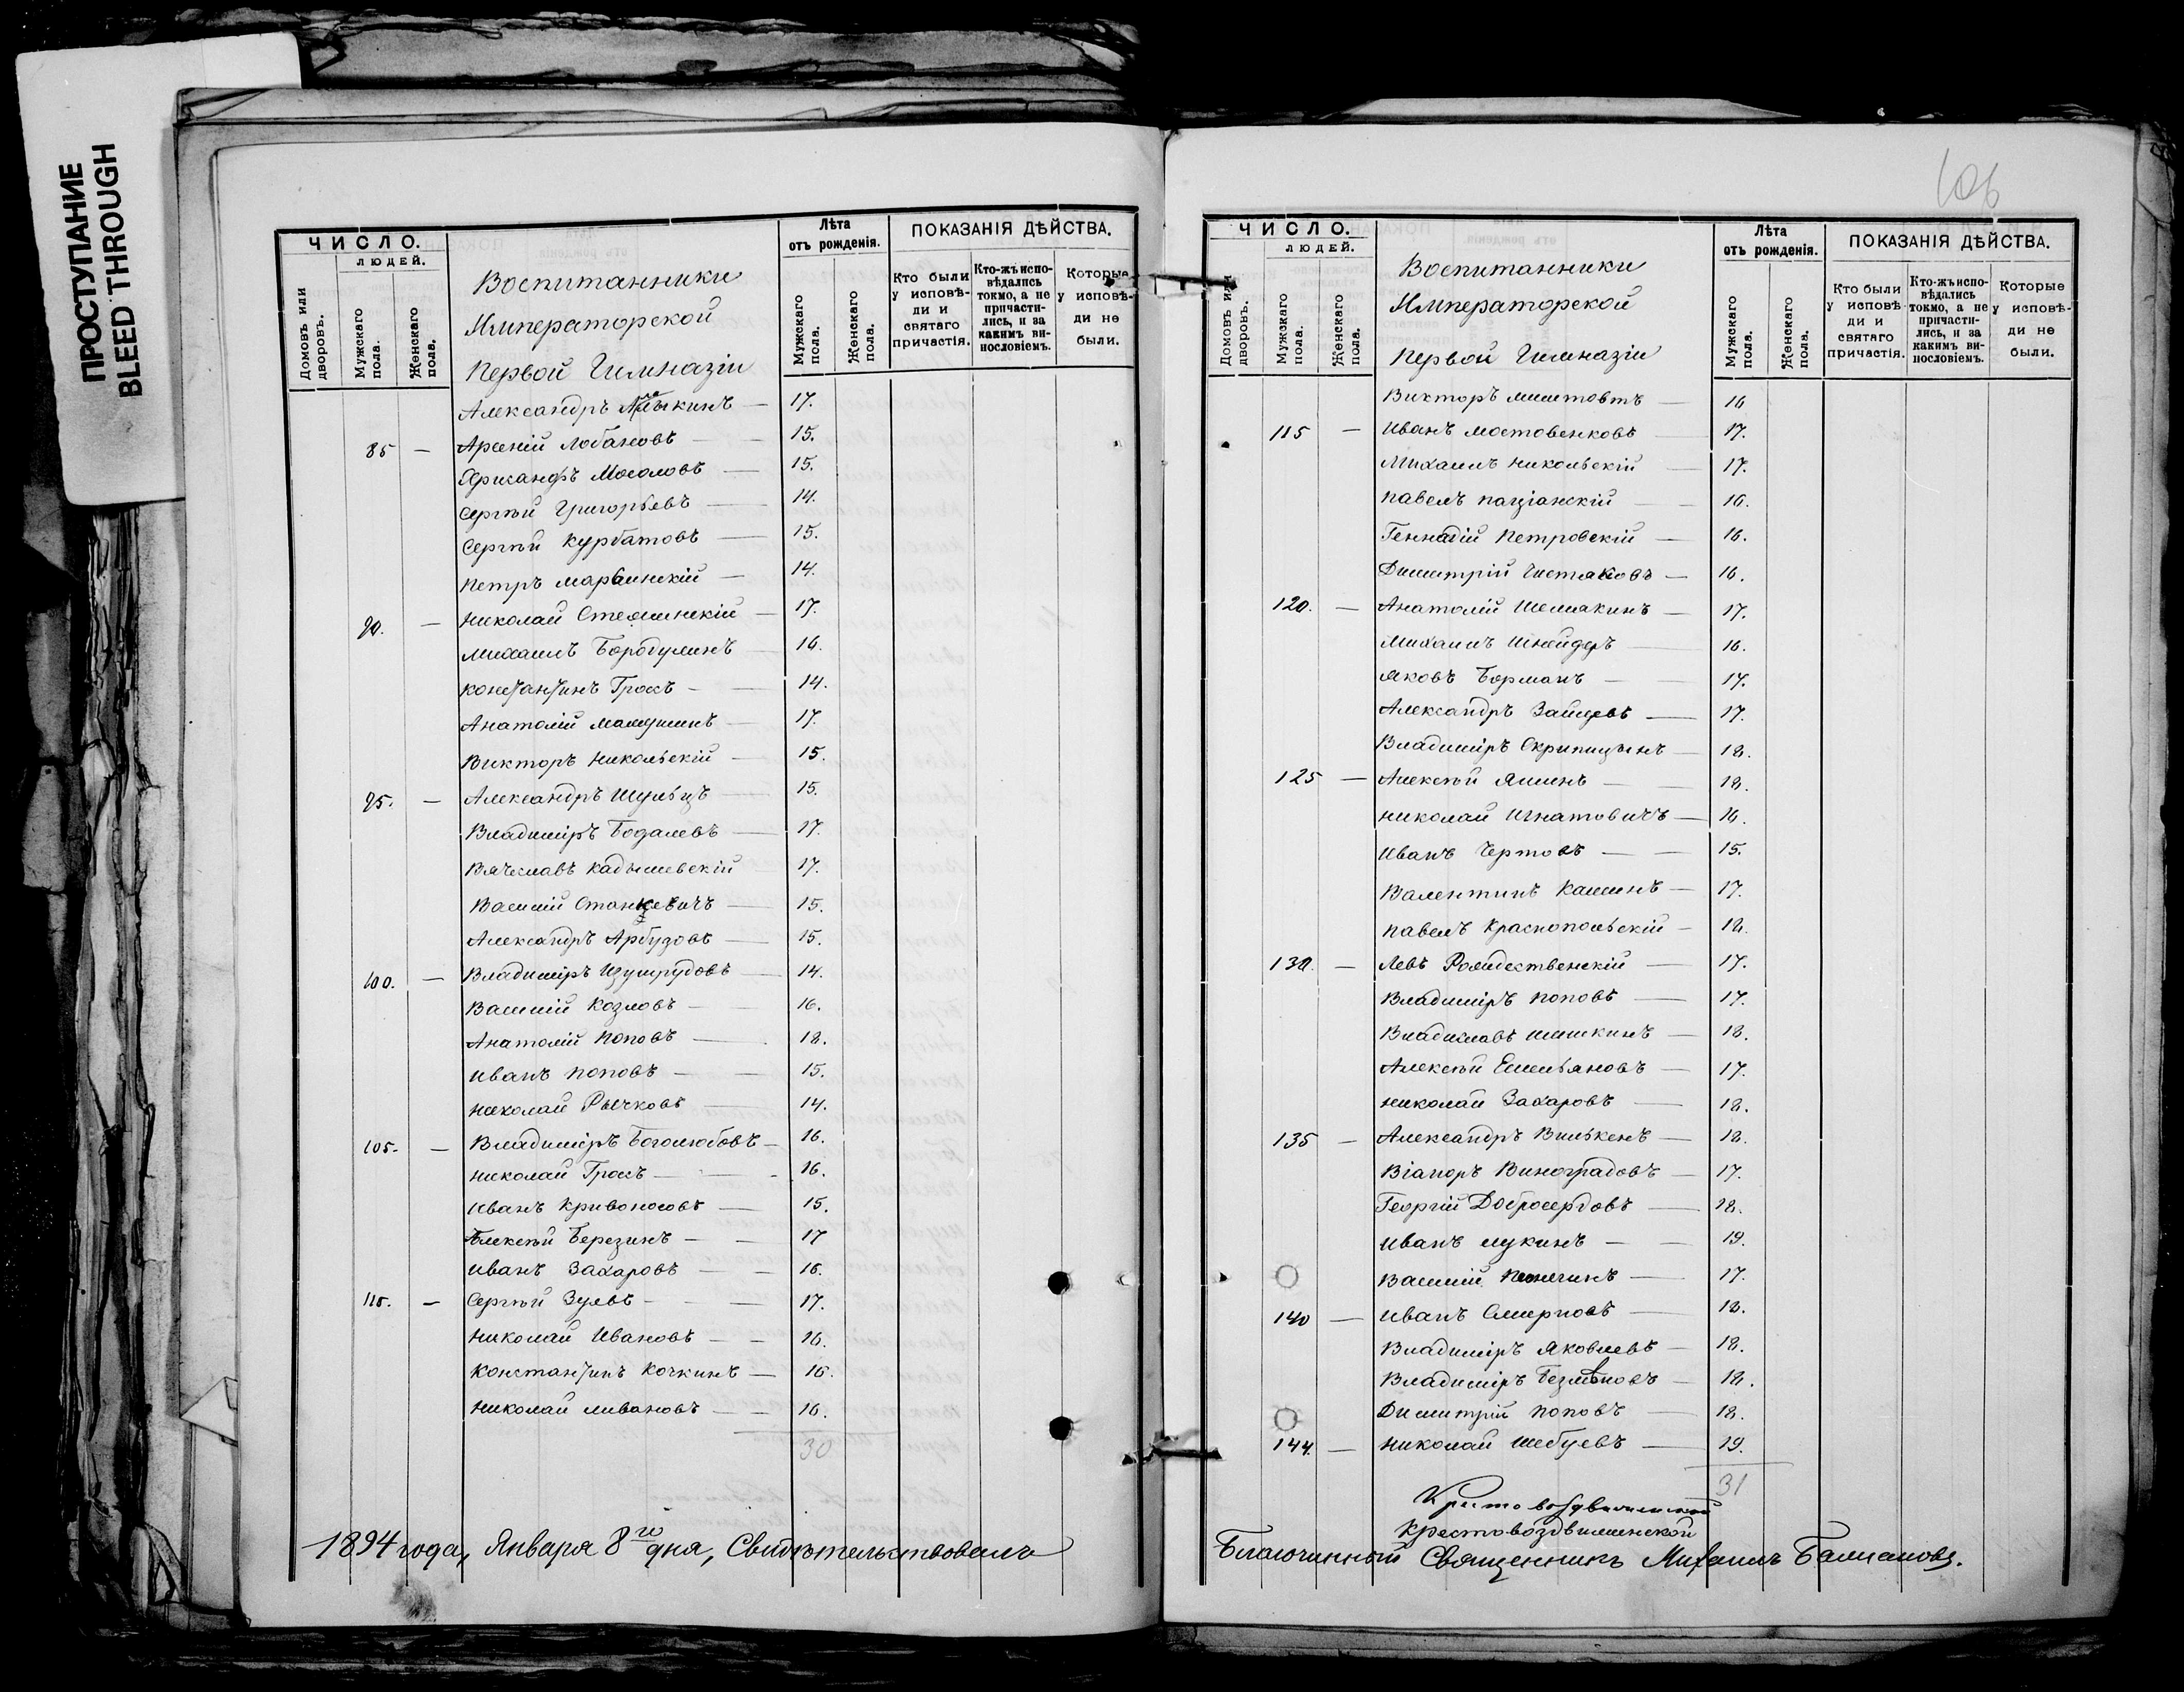 ПРОСТУПАНИЕ
BLEED THROUGH
ЧИСЛО.
ЛЮДЕЙ.
Домовъ или дворовъ.
Мужскаго пола.
Женскаго пола.
Воспитанники
Императорской
Первой Гимназіи
Лѣта
отъ рожденія.
Мужскаго пола.
Женскаго пола.
ПОКАЗАНІЯ ДѢЙСТВА.
Кто были у исповѣди и святаго причастія.
Кто-жъ исповѣдались токмо, а не причастились, и за какимъ винословіемъ.
Которые у исповѣди не были.
Александръ — 17.
85 — Арсеній Лобановъ — 15.
Мосоловъ — 15.
Сергѣй Григорьевъ — 14.
Сергѣй Курбатовъ — 15.
Петръ — 14.
90. — Николай — 17.
Михаилъ Бородулинъ — 16.
Константинъ Грось — 14.
Анатолій — 17.
Викторъ Никольскій — 15.
95. — Александръ Шульцъ — 15.
Владиміръ Бодалевъ — 17.
Вячеславъ Кадышевскій 17.
Василій Станкевичъ — 15.
Александръ Арбузовъ — 15.
100. — Владиміръ Изумрудовъ — 14.
Василій Козловъ — 16.
Анатолій Поповъ — 18.
Иванъ Поповъ — 15.
Николай Рычковъ — 14.
105. — Владиміръ Боголюбовъ — 16.
Николай Грось — 16.
Иванъ Кривоносовъ — 15.
Алексѣй Березинъ — 17
Иванъ Захаровъ — 16.
110. — Сергѣй Зуевъ — 17.
Николай Ивановъ — 16.
Константинъ Кочкинъ — 16.
Николай Ливановъ — 16.
30
1894 года, Января 8го дня, Свидѣтельствовалъ
106
ЧИСЛО.
ЛЮДЕЙ.
Домовъ или дворовъ.
Мужскаго пола.
Женскаго пола.
Воспитанники
Императорской
Первой Гимназіи
Лѣта
отъ рожденія.
Мужскаго пола.
Женскаго пола.
ПОКАЗАНІЯ ДѢЙСТВА.
Кто были у исповѣди и святаго причастія.
Кто-жъ исповѣдались токмо, а не причастились, и за какимъ винословіемъ.
Которые у исповѣди не были.
Викторъ Миштовтъ — 16
115 — Иванъ Мостовенковъ 17.
Михаилъ Никольскій — 17.
Павелъ — 16.
Геннадій Петровскій — 16.
Димитрій Чистяковъ — 16.
120. — Анатолій Шемякинъ — 17.
Михаилъ Шнейдеръ — 16.
Яковъ Борманъ — 17.
Александръ Зайцевъ — 17.
Владиміръ Скрипицынъ — 18.
125 — Алексѣй Яшинъ — 18.
Николай Игнатовичъ — 16.
Иванъ Чертовъ — 15.
Валентинъ Кашинъ — 17.
Павелъ Краснопольскій — 18.
130. — Левъ Рождественскій — 17.
Владиміръ Поповъ — 17.
Владиславъ Шишкинъ — 18.
Алексѣй Емельяновъ — 17.
Николай Захаровъ — 18.
135 — Александръ Вилькенъ — 18.
Віаноръ Виноградовъ — 17.
Георгій Добросердовъ — 18.
Иванъ Лукинъ — 19.
Василій — 17.
140 — Иванъ Смирновъ — 18.
Владиміръ Яковлевъ — 18.
Владиміръ — 18.
Димитрій Поповъ — 18.
144. — Николай Шебуевъ — 19.
31
Крестовоздвиженской
Крестовоздвиженской
Благочинный Священникъ Михаилъ